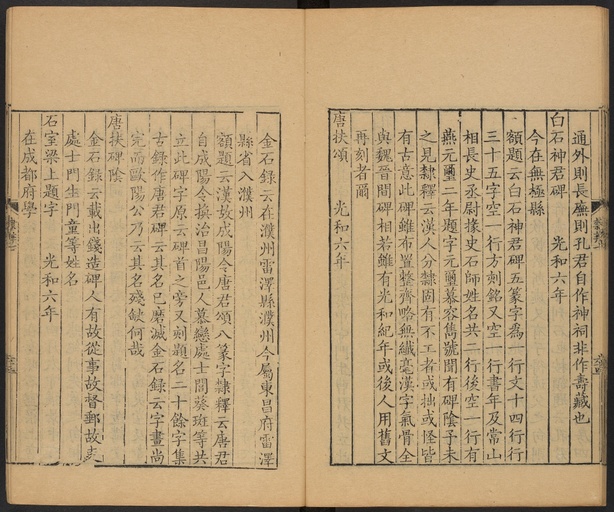 通外則長廡則孔君自作神祠非作壽藏也
白石神君碑 光和六年
今在無極縣
額題云白石神君碑五篆字為一行文十四行行
三十五字空一行方刻銘又空一行書年及常山
相長史丞尉掾史石師姓名共二行後空一行有
燕元璽二年題字元璽慕容雋號聞有碑陰予未
之見隸釋云漢人分隸固有不工者或拙或怪皆
有古意此碑雖布置整齊略無纖毫漢字氣骨全
與魏晉間碑相若雖有光和紀年或後人用舊文
再刻者爾
唐扶頌 光和六年
金石錄云在濮州雷澤縣濮州今屬東昌府雷澤
縣省入濮州
額題云漢故成陽令唐君頌八篆字隸釋云唐君
自成陽令換治昌陽邑人慕戀處士閭葵班等共
立此碑字原云碑首之旁又刻題名二十餘字集
古錄作唐君碑云其名已磨滅金石錄云字畫尚
完而歐陽公乃云其名殘缺何哉
唐扶碑陰
金石錄云載出錢造碑人有故從事故督郵故吏
處士門生門童等姓名
石室梁上題字 光和六年
在成都府學